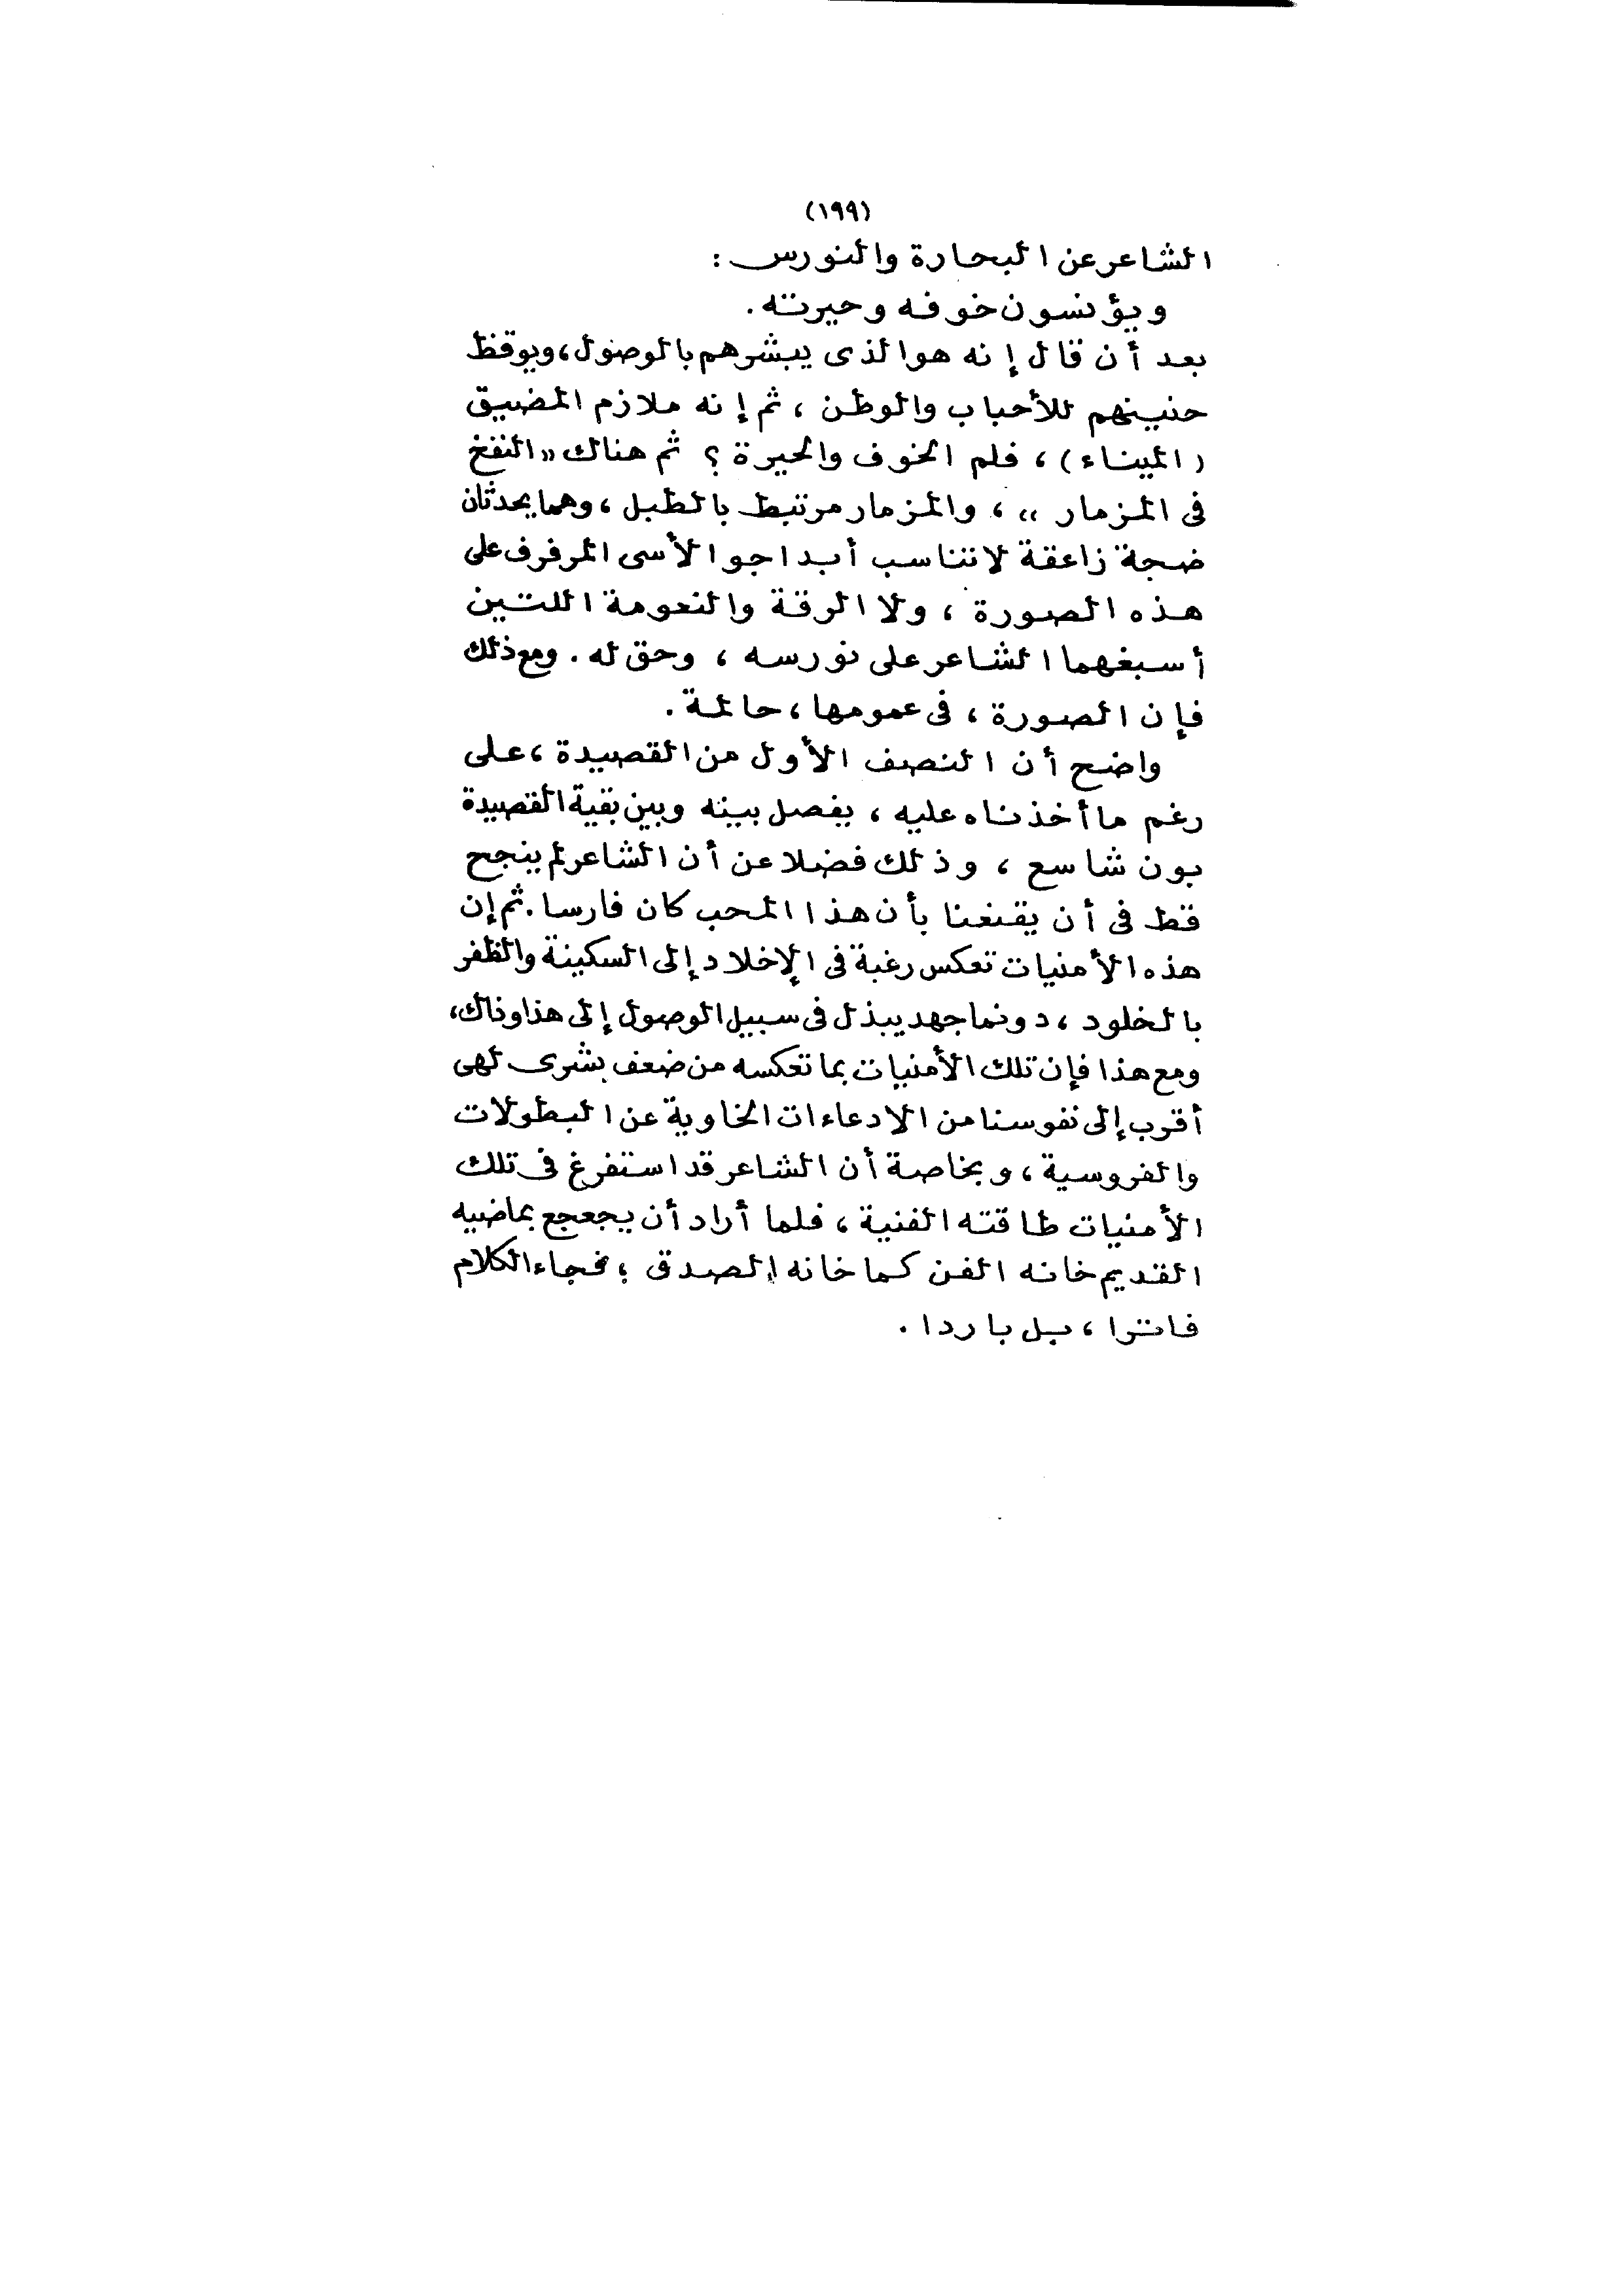 (١٩٩)
الشاعر عن البحارة والنورس :
ويؤنسون خوفه وحيرته .
بعد أن قال إنه هو الذى يبشرهم بالوصول ، ويوقظ
حنينهم للأحباب والوطن ، ثم إنه ملازم المضيق
( الميناء ) ، فلم الخوف والحيرة ؟ ثم هناك « النفخ
فى المزمار » ، والمزمار مرتبط بالطبل ، وهما يحدثان
ضجة زاعقة لا تتناسب أبدا جو الأسى المرفرف على
هذه الصورة ، ولا الرقة والنعومة اللتين
أسبغهما الشاعر على نورسه ، وحق له . ومع ذلك
فإن الصورة ، فى عمومها ، حالمة .
واضح أن النصف الأول من القصيدة ، على
رغم ما أخذناه عليه ، يفصل بينه وبين بقية القصيدة
بون شاسع ، وذلك فضلا عن أن الشاعر لم ينجح
قط فى أن يقنعنا بأن هذا المحب كان فارسا . ثم إن
هذه الأمنيات تعكس رغبة فى الإخلاد إلى السكينة والظفر
بالخلود ، دونما جهد يبذل فى سبيل الوصول إلى هذا وذاك ،
ومع هذا فإن تلك الأمنيات بما تعكسه من ضعف بشرى لهى
أقرب إلى نفوسنا من الادعاءات الخاوية عن البطولات
والفروسية ، وبخاصة أن الشاعر قد استفرغ فى تلك
الأمنيات طاقته الفنية ، فلما أراد أن يجعجع بماضيه
القديم خانه الفن كما خانه الصدق ؛ فجاء الكلام
فاترا ، بل باردا .